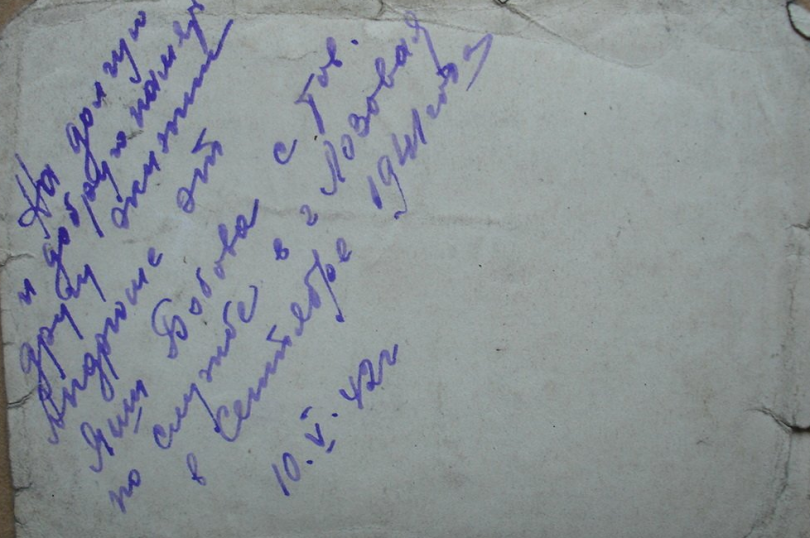 На долгую
и добрую память
другу жизни
Андрюше от
Яши Бобова с тов.
по службе в г Лозовая
в сентябре 1941 года
10.V.42г